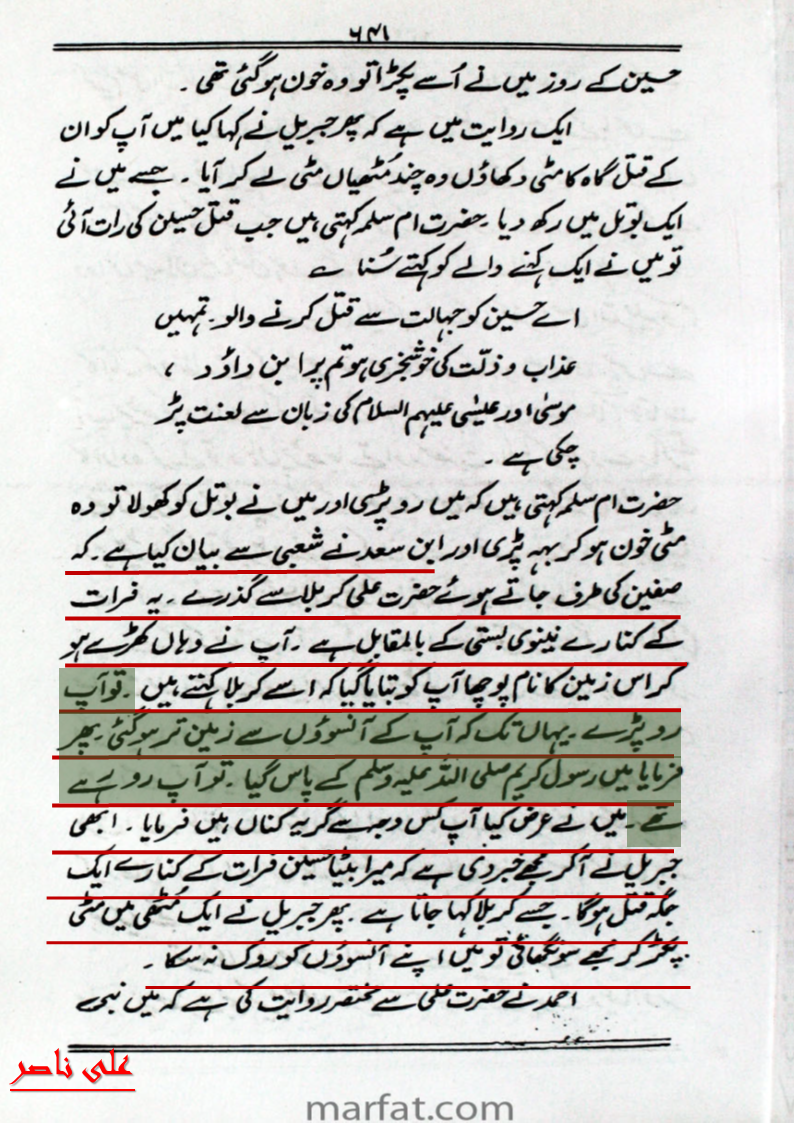 ۶۴۱
حسین کے روز میں نے اُسے پکڑا تو وہ خون ہو گئی تھی ۔
ایک روایت میں ہے کہ پھر جبریل نے کہا کیا میں آپ کو ان
کے قتل گاہ کا مٹی دکھاؤں وہ چند مُٹھیاں مٹی لے کر آیا ۔ جسے میں نے
ایک بوتل میں رکھ دیا ۔ حضرت ام سلمہ کہتی ہیں جب قتل حسین کی رات آئی
تو میں نے ایک کہنے والے کو کہتے سُنا ؎
اے حسین کو جہالت سے قتل کرنے والو ۔ تمہیں
عذاب و ذلّت کی خوشخبری ہو تم پر ابن داؤد ،
موسیٰ اور عیسٰی علیہم السلام کی زبان سے لعنت پڑ
چکی ہے ۔
حضرت ام سلمہ کہتی ہیں کہ میں رو پڑی اور میں نے بوتل کو کھولا تو وہ
مٹی خون ہو کر بہہ پڑی اور ابن سعد نے شعبی سے بیان کیا ہے ۔ کہ
صفین کی طرف جاتے ہوئے حضرت علی کربلا سے گذرے ۔ یہ فرات
کے کنارے نینوی بستی کے بالمقابل ہے ۔ آپ نے وہاں کھڑے ہو
کر اس زمین کا نام پوچھا آپ کو بتایا گیا کہ اسے کربلا کہتے ہیں ۔ تو آپ
رو پڑے ۔ یہاں تک کہ آپ کے آنسوؤں سے زمین تر ہو گئی ۔ پھر
فرمایا میں رسول کریم صلی اللہ علیہ وسلم کے پاس گیا ۔ تو آپ رو رہے
تھے ۔ میں نے عرض کیا آپ کس وجہ سے گریہ کناں ہیں فرمایا ۔ ابھی
جبریل نے آ کر مجھے خبر دی ہے کہ میرا بیٹا حسین فرات کے کنارے ایک
جگہ قتل ہو گا ۔ جسے کربلا کہا جاتا ہے ۔ پھر جبریل نے ایک مُٹھی میں مٹی
پکڑ کر مجھے سونگھائی تو میں اپنے آنسوؤں کو روک نہ سکا ۔
احمد نے حضرت علی سے مختصر روایت کی ہے کہ میں نبی
علی ناصر
marfat.com